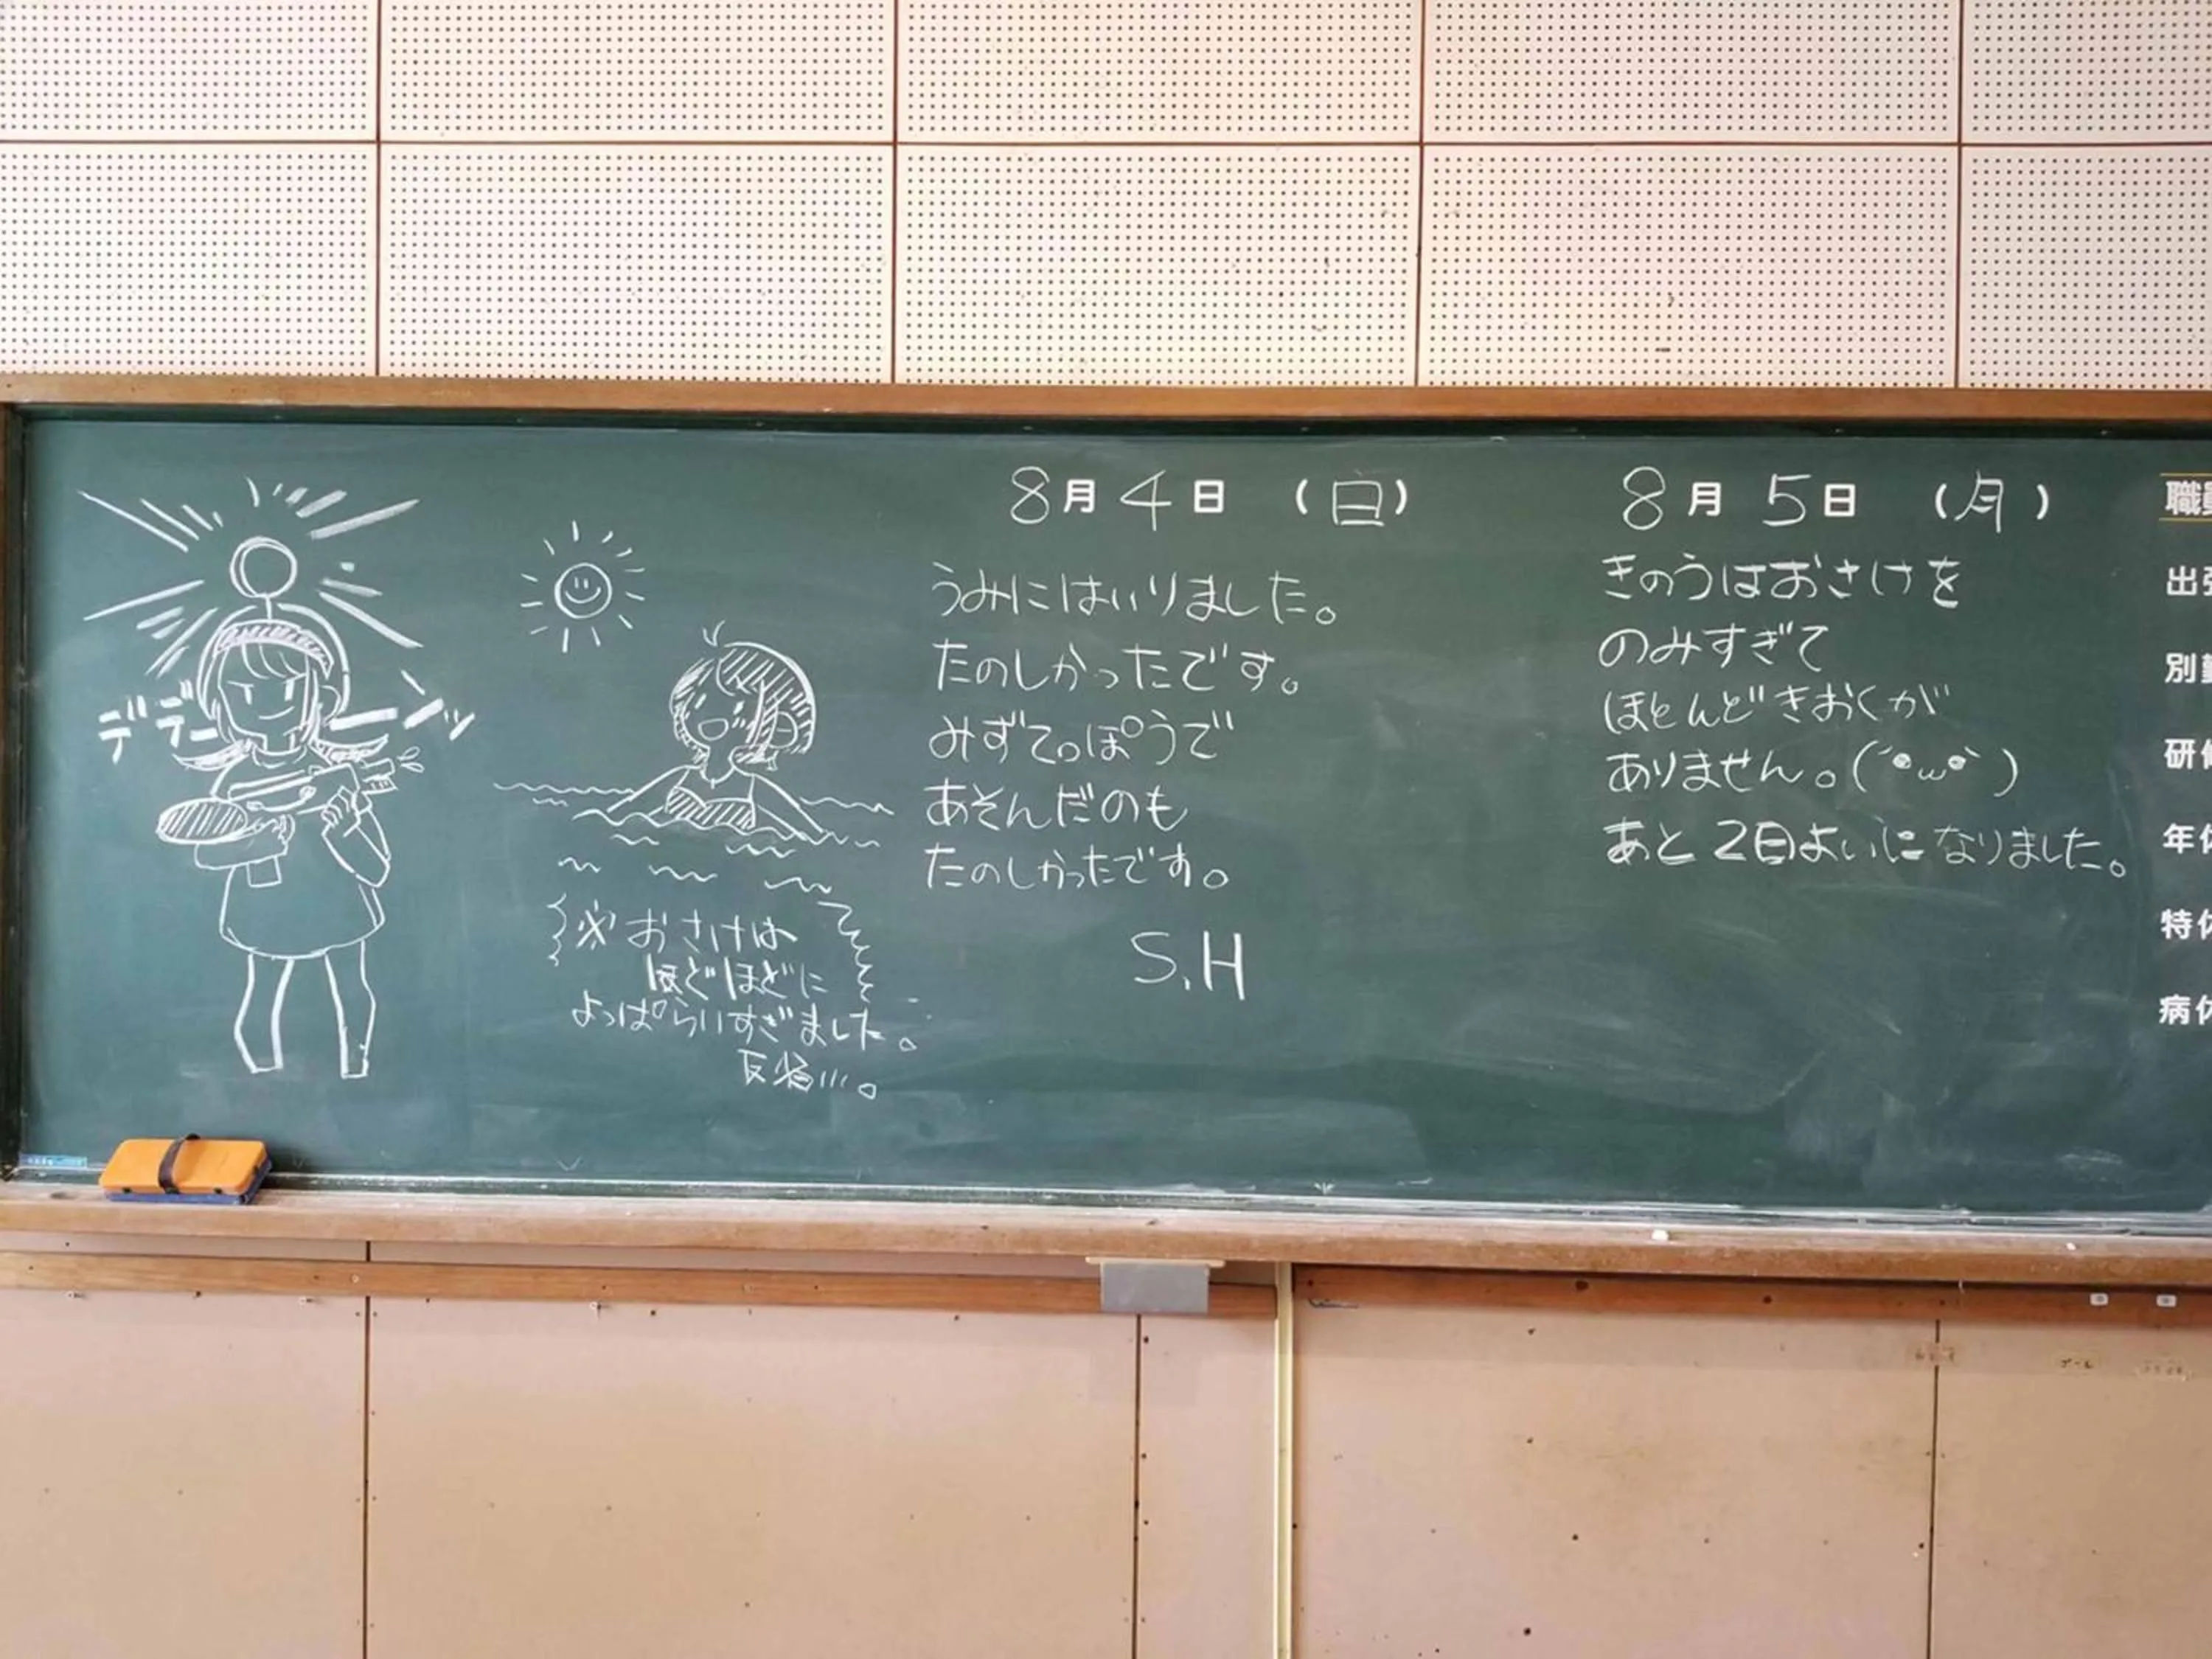 デデーーンッ
8月4日 (日)
うみにはいりました。
たのしかったです。
みずてっぽうで
あそんだのも
たのしかったです。
S.H
※おさけは
ほどほどに
よっぱらいすぎました。
反省…。
8月5日 (月)
きのうはおさけを
のみすぎて
ほとんどきおくが
ありません。(´•ω•`)
あと2日よいになりました。
職
出張
別
研修
年休
特休
病休